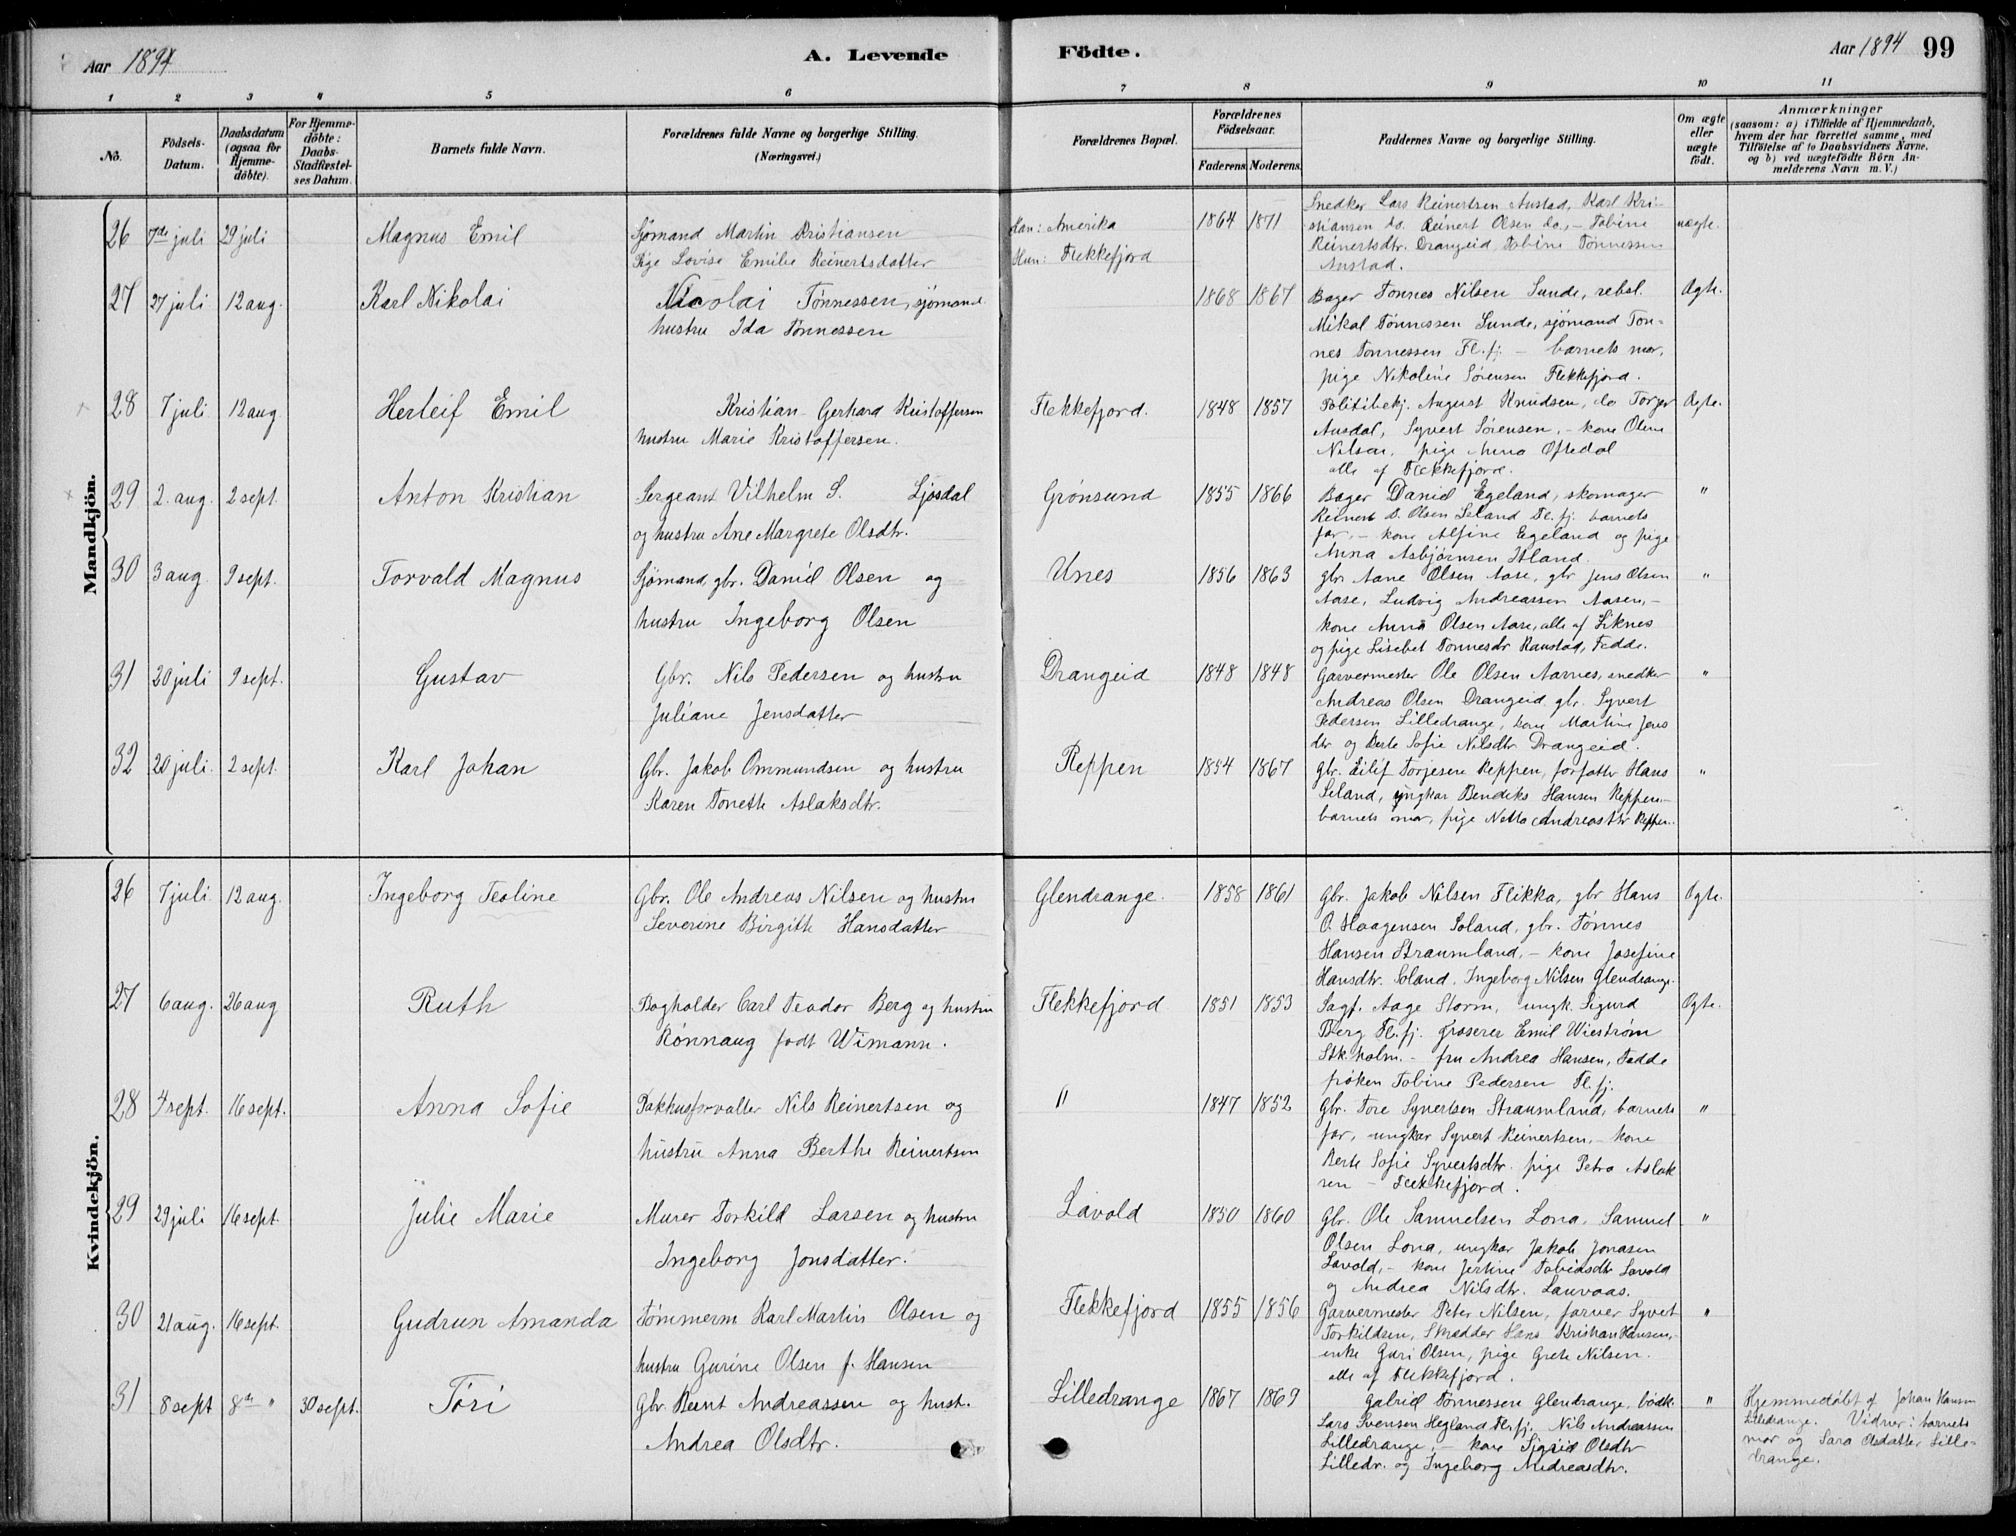 Aar 1894
A. Levende
Födte.
Aar 1894
99
1 2 3 4 5 6 7 8 9 10 11
No.
Födsels-
Datum.
Daabsdatum
(ogsaa for
Hjemme-
döbte).
For Hjemme-
döbte:
Daabs-
Stadfæstel-
ses Datum.
Barnets fulde Navn.
Forældrenes fulde Navne og borgerlige Stilling.
(Næringsvei.)
Forældrenes Bopæl.
Forældrenes
Födselsaar.
Faderens. Moderens.
Faddernes Navne og borgerlige Stilling.
Om ægte
eller
uægte
födt.
Anmærkninger
(saasom: a) i Tilfælde af Hjemmedaab,
hvem der har forrettet samme, med
Tilföielse af to Daabsvidners Navne,
og b) ved uægtefödte Börn An-
melderens Navn m. V.)
Mandkjön.
26 7de juli 29 juli
Magnus Emil
Sjømand Martin Kristiansen
Pige Lovise Emilie Reinertsdatter
Han: Amerika
Hun: Flekkefjord
1864 1871
Snedker Lars Reinertsen Austad, Karl Kri-
stiansen do. Reinert Olsen do., - Tobine
Reinertsdtr. Drangeid, Tobine Tønnessen
Austad.
uægte.
27 27 juli 12 aug.
Karl Nikolai
Nicolai Tønnessen, sjømand
hustru Ida Tønnessen
1868 1867
Bager Tønnes Nilsen Sunde, rebsl.
Mikal Tønnessen Sunde, sjømand Tøn-
nes Tønnessen Fl.fj. - barnets mor,
pige Nikoline Sørensen Flekkefjord.
Ægte.
28 7 juli 12 aug
Herleif Emil
Kristian Gerhard Kristoffersen
hustru Marie Kristoffersen.
Flekkefjord.
1848 1857
Politibetj. August Knudsen, do Torjer
Ausdal, Syvert Sørensen, - kone Oline
Nilsen, pige Anna Oftedal
alle af Flekkefjord.
Ægte.
29 2. aug. 2 sept.
Anton Kristian
Sergeant Vilhelm S. Ljosdal
og hustru Ane Margrete Olsdtr.
Grønsund
1855 1866
Bager Daniel Egeland, skomager
Reinert B. Olsen Seland Fl.fj. barnets
far, - kone Alfine Egeland og pige
Anna Asbjørnsen Itland.
"
30 3 aug. 9 sept.
Torvald Magnus
Sjømand, gbr. Daniel Olsen og
hustru Ingeborg Olsen
Unes
1856 1863
gbr. Aane Olsen Aase, gbr Jens Olsen
Aase, Ludvig Andreassen Aasen, -
kone Anna Olsen Aase, alle af Liknes
og pige Lisebet Tønnesdtr Ranstad, Fedde.
"
31 20 juli 9 sept.
Gustav
Gbr. Nils Pedersen og hustru
Juliane Jensdatter
Drangeid
1848 1848
Garvermester Ole Olsen Aarnes, snedker
Andreas Olsen Drangeid gbr. Syvert
Pedersen Lilledrange, kone Martine Jens
dtr. og Berte Sofie Nilsdtr Drangeid.
"
32 20 juli. 2 sept.
Karl Johan
Gbr. Jakob Ommundsen og hustru
Karen Tonette Aslaksdtr.
Reppen
1854 1867
Gbr. Eilif Torjesen Reppen, forfatter Hans
Seland, ungkar Bendiks Hansen Reppen, -
barnets mor, pige Netta Andreasdtr Reppen.
"
Kvindekjön.
26 7 juli. 12 aug.
Ingeborg Teoline
Gbr. Ole Andreas Nilsen og hustru
Severine Birgitte Hansdatter
Glendrange.
1858 1861
Gbr. Jakob Nilsen Flikka, gbr Hans
O. Haagensen Soland, gbr. Tønnes
Hansen Straumland, - kone Josefine
Hansdtr. Soland. Ingeborg Nilsen Glendrange.
Ægte.
27 6 aug. 26 aug
Ruth
Bogholder Carl Teodor Berg og hustru
Rønnaug født Wimann.
Flekkefjord
1851 1853
Sagf. Aage Storm, ungk. Sigurd
Berg Fl.fj. Grosserer Emil Wiestrøm
Stk.holm. - fru Andrea Hansen, Fedde
frøken Tobine Pedersen Fl.fj.
Ægte.
28 4 sept. 16 sept.
Anna Sofie
Pakhusforvalter Nils Reinertsen og
hustru Anna Berthe Reinertsen
"
1847 1852
Gbr. Tore Syvertsen Straumland, barnets
far, ungkar Syvert Reinertsen, - kone
Berte Sofie Syvertsdtr. pige Petra Aslak
sen - Flekkefjord.
"
29 29 juli 16 sept.
Julie Marie
Murer Torkild Larsen og hustru
Ingeborg Jonsdatter.
Lavold
1850 1860
Gbr. Ole Samuelsen Lona, Samuel
Olsen Lona, ungkar Jakob Jonasen
Lavold, - kone Jertine Tobiasdtr Lavold
og Andrea Nilsdtr. Lauvaas.
"
30 21 aug. 16 sept.
Gudrun Amanda
Tømmerm Karl Martin Olsen og
hustru Gurine Olsen f. Hansen
Flekkefjord
1855 1856
Garvermester Peter Nilsen, farver Syvert
Torkildsen, Skrædder Hans Kristian Hansen, -
enke Guri Olsen, pige Grete Nilsen.
alle af Flekkefjord.
"
31 8 sept 8de " 30 sept.
Tóri
Gbr. Bernt Andreassen og hust.
Andrea Olsdtr.
Lilledrange
1867 1869
Gabriel Tønnessen Glendrange, bødk.
Lars Svensen Hegland Fl.fj. Nils Andreassen
Lilledrange, - kone Sigrid Olsdtr
Lilledr. og Ingeborg Andreasdtr.
"
Hjemmedøbt af Johan Hansen
Lilledrange. Vidner: barnets
mor og Sara Olsdatter Lille-
drange.